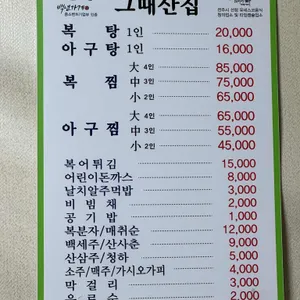 백년가게
그때산집
복탕 1인 20,000
아구탕 1인 16,000
大 4인 85,000
복찜 中 3인 75,000
小 2인 65,000
大 4인 65,000
아구찜 中 3인 55,000
小 2인 45,000
복어튀김 15,000
어린이돈까스 8,000
날치알주먹밥 3,000
비빔채 2,000
공기밥 1,000
복분자/매취순 12,000
백세주/산사춘 9,000
산삼주/청하 5,000
소주/맥주/가시오가피 4,000
막걸리 3,000
음료수 2,000